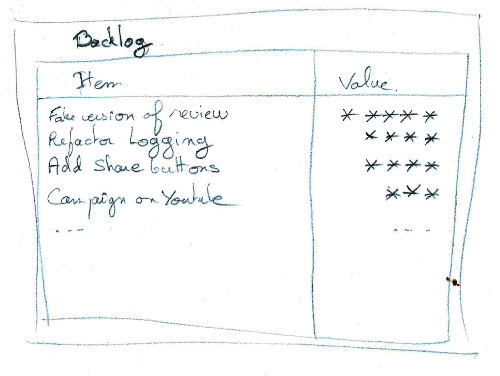 Backlog
Item Value.
Fake version of review *****
Refactor Logging ****
Add Share buttons ****
Campaign on Youtube ***
... ...